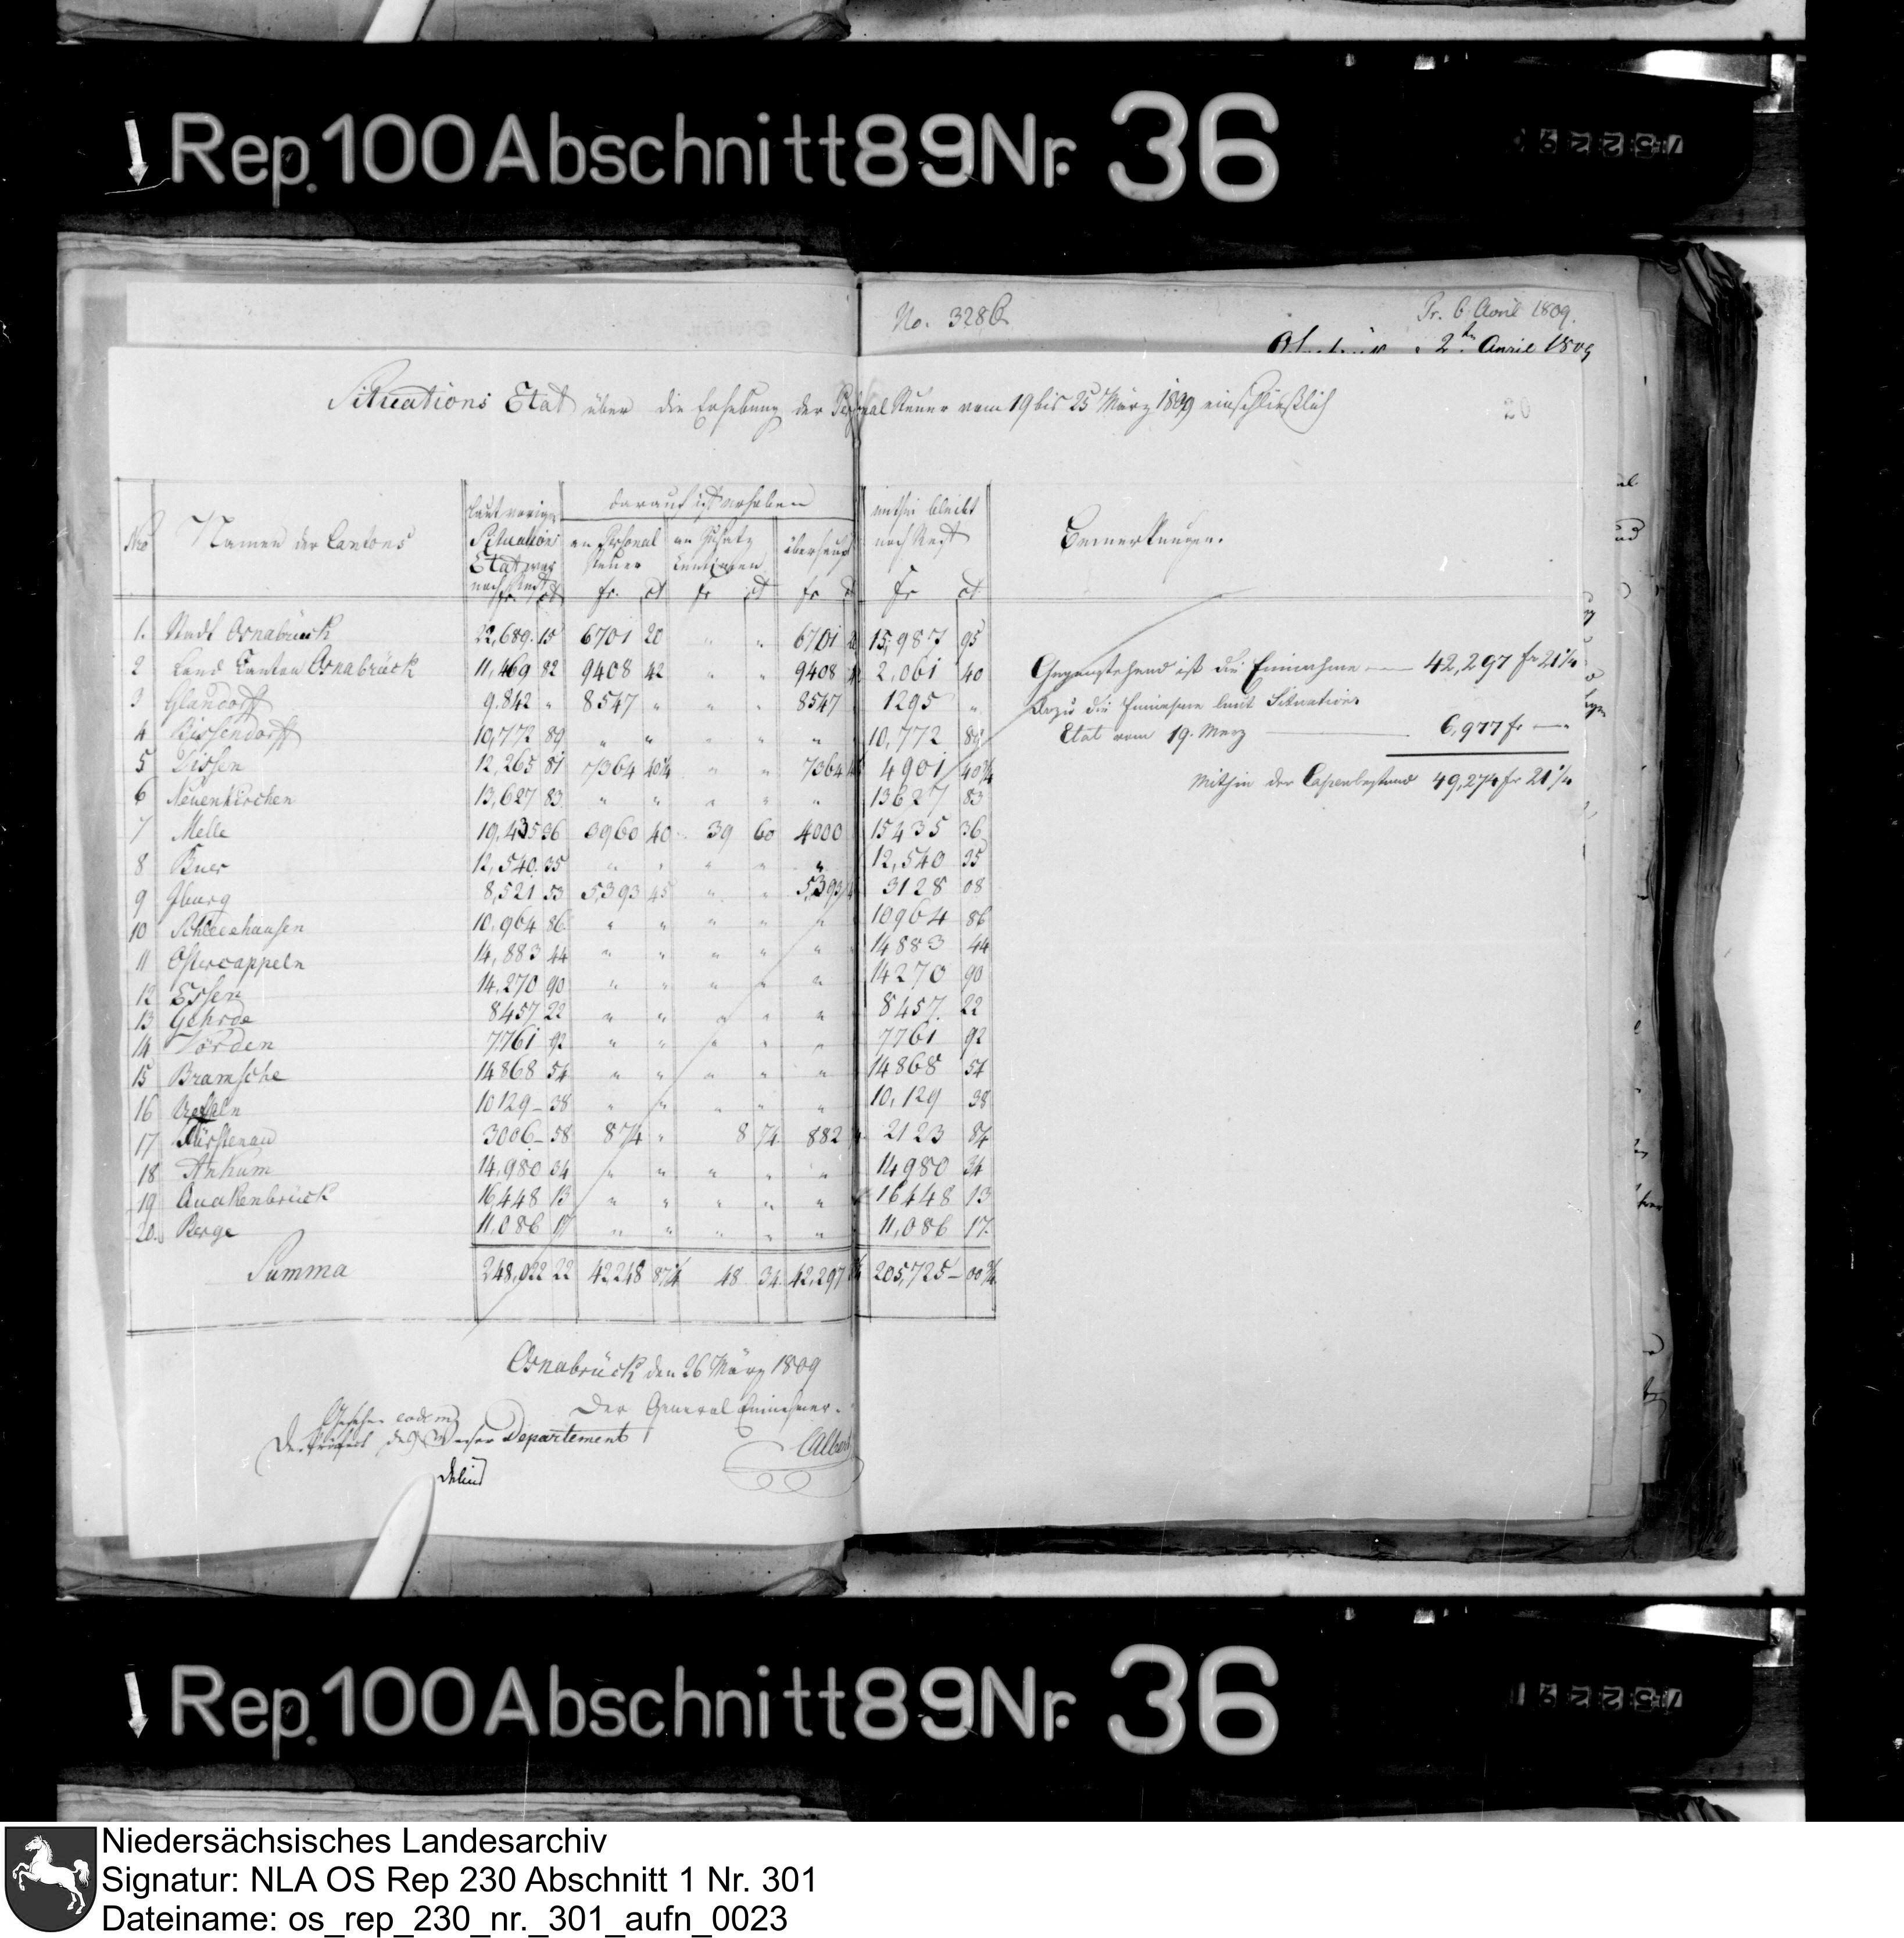 Rep. 100 Abschnitt 89 Nr. 36
No. 3286
Pr. 6. April 1809.
2ten April 1809
Situations Etat über die Erhebung der Personal Steuer vom 19 bis 25 März 1809 einschließlich
20
Nro Namen der Cantons laut vorigen Situations Etat war noch Rest fr. ct darauf ist erhoben an Personal Steuer fr. ct an Zusatz Centimen fr ct überhaupt fr ct mithin bleibt noch Rest fr ct Bemerkungen.
1. Stadt Osnabrück 22,689. 15 6701 20 " " 6701 20 15,987 95
2 Land Canton Osnabrück 11,469 82 9408 42 " " 9408 42 2,061 40
3 Glandorff 9.842 " 8547 " " " 8547 1295 "
4 Bissendorff 10,772 89 " " " " " 10,772 89
5 Dissen 12,265 81 7364 40 1/4 " " 7364 4901 40 3/4
6 Neuenkirchen 13,627 83 " " " " " 13627 83
7 Melle 19,435 36 3960 40 39 60 4000 15435 36
8 Buer 12,540. 35 " " " " " 12,540 35
9 Iburg 8,521 53 5,393 45 " " 5,393 3128 08
10 Schledehausen 10,964 86 " " " " " 10964 86
11 Ostercappeln 14,883 44 " " " " " 14883 44
12 Essen 14,270 90 " " " " " 14270 90
13 Gehrde 8457 22 " " " " " 8457. 22
14 Vörden 7761 92 " " " " " 7761 92
15 Bramsche 14868 54 " " " " " 14868 54
16 10129 – 38 " " " " " 10,129 38
17 Fürstenau 3006 – 58 874 " 8 74 882 2123 84
18 Ankum 14,980 34 " " " " " 14980 34
19 Quakenbrück 16,448 13 " " " " " 16448 13
20. Berge 11,086 17 " " " " " 11,086 17.
Summa 248,022 22 42248 87 1/4 48 34 42,297 205,725 – 00 3/4
Gegenstehend ist die Einnahme —— 42,297 fr 21 1/4
Dazu die Einnahme laut Situations
Etat vom 19. Merz —— 6,977 fr —
Mithin der Cassenbestand 49,274 fr 21 1/4
Osnabrück den 26 März 1809
Der General Einnehmer.
Gesehen eodem
Der Präfect des Weser Departement
Rep. 100 Abschnitt 89 Nr. 36
Niedersächsisches Landesarchiv
Signatur: NLA OS Rep 230 Abschnitt 1 Nr. 301
Dateiname: os_rep_230_nr._301_aufn_0023